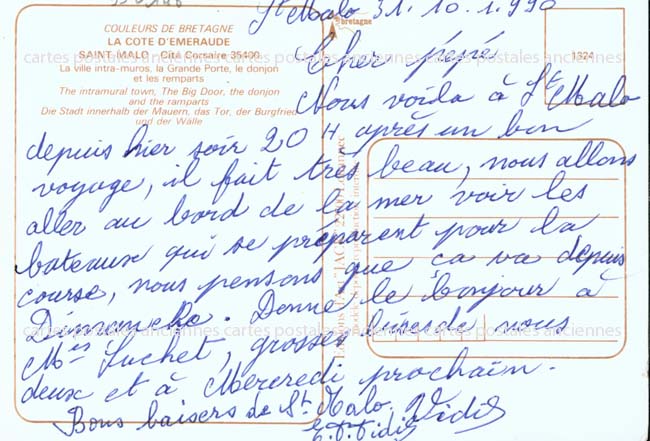 St Malo 31.10.1990
COULEURS DE BRETAGNE
LA COTE D'EMERAUDE
SAINT-MALO - Cité Corsaire 35400
La ville intra-muros, la Grande Porte, le donjon
et les remparts
The intramural town, The Big Door, the donjon
and the ramparts
Die Stadt innerhalb der Mauern, das Tor, der Burgfried
und der Wälle
bretagne
1324
cartes postales anciennes cartes postales anciennes cartes postales anciennes
Cher pépé
Nous voila à St Malo
depuis hier soir 20 H après un bon
voyage, il fait très beau, nous allons
aller au bord de la mer voir les
bateaux qui se préparent pour la
course, nous pensons que ça va depuis
Dimanche. Donne le bonjour à
cartes postales anciennes cartes postales anciennes cartes postales anciennes
Mme Luchet, grosses bises de nous
deux et à Mercredi prochain.
Bons baisers de St Malo.